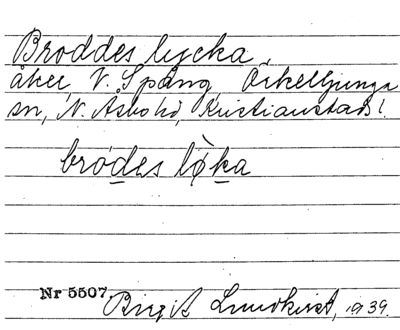 Broddes lycka,
åker, V. Spång, Örkelljunga
sn, N. Åsbo hd, Kristianstads l.
bródes lø̀ka
Nr 5507.
Birgit Lundkvist, 1939.